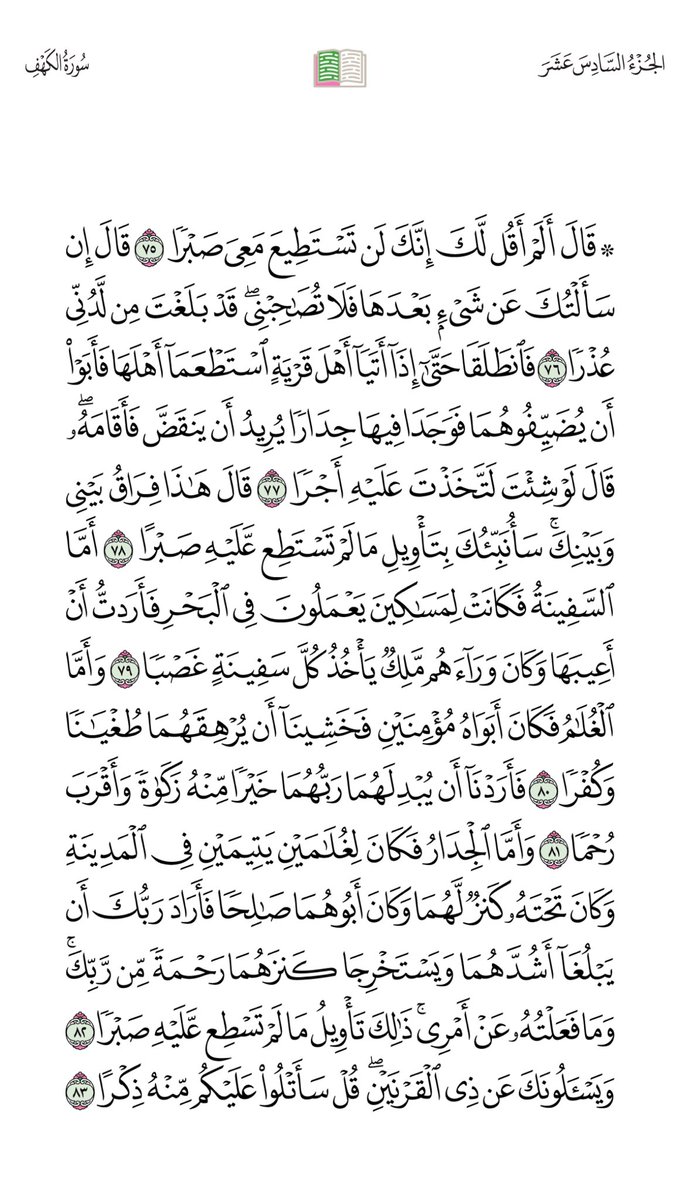 الجُزْءُ السَّادِسَ عَشَرَ
سُورَةُ الكَهْفِ
۞ قَالَ أَلَمْ أَقُل لَّكَ إِنَّكَ لَن تَسْتَطِيعَ مَعِىَ صَبْرًا ٧٥ قَالَ إِن
سَأَلْتُكَ عَن شَىْءٍۭ بَعْدَهَا فَلَا تُصَٰحِبْنِى ۖ قَدْ بَلَغْتَ مِن لَّدُنِّى
عُذْرًا ٧٦ فَٱنطَلَقَا حَتَّىٰٓ إِذَآ أَتَيَآ أَهْلَ قَرْيَةٍ ٱسْتَطْعَمَآ أَهْلَهَا فَأَبَوْا۟
أَن يُضَيِّفُوهُمَا فَوَجَدَا فِيهَا جِدَارًا يُرِيدُ أَن يَنقَضَّ فَأَقَامَهُۥ ۖ
قَالَ لَوْ شِئْتَ لَتَّخَذْتَ عَلَيْهِ أَجْرًا ٧٧ قَالَ هَٰذَا فِرَاقُ بَيْنِى
وَبَيْنِكَ ۚ سَأُنَبِّئُكَ بِتَأْوِيلِ مَا لَمْ تَسْتَطِع عَّلَيْهِ صَبْرًا ٧٨ أَمَّا
ٱلسَّفِينَةُ فَكَانَتْ لِمَسَٰكِينَ يَعْمَلُونَ فِى ٱلْبَحْرِ فَأَرَدتُّ أَنْ
أَعِيبَهَا وَكَانَ وَرَآءَهُم مَّلِكٌ يَأْخُذُ كُلَّ سَفِينَةٍ غَصْبًا ٧٩ وَأَمَّا
ٱلْغُلَٰمُ فَكَانَ أَبَوَاهُ مُؤْمِنَيْنِ فَخَشِينَآ أَن يُرْهِقَهُمَا طُغْيَٰنًا
وَكُفْرًا ٨٠ فَأَرَدْنَآ أَن يُبْدِلَهُمَا رَبُّهُمَا خَيْرًا مِّنْهُ زَكَوٰةً وَأَقْرَبَ
رُحْمًا ٨١ وَأَمَّا ٱلْجِدَارُ فَكَانَ لِغُلَٰمَيْنِ يَتِيمَيْنِ فِى ٱلْمَدِينَةِ
وَكَانَ تَحْتَهُۥ كَنزٌ لَّهُمَا وَكَانَ أَبُوهُمَا صَٰلِحًا فَأَرَادَ رَبُّكَ أَن
يَبْلُغَآ أَشُدَّهُمَا وَيَسْتَخْرِجَا كَنزَهُمَا رَحْمَةً مِّن رَّبِّكَ ۚ
وَمَا فَعَلْتُهُۥ عَنْ أَمْرِى ۚ ذَٰلِكَ تَأْوِيلُ مَا لَمْ تَسْطِع عَّلَيْهِ صَبْرًا ٨٢
وَيَسْـَٔلُونَكَ عَن ذِى ٱلْقَرْنَيْنِ ۖ قُلْ سَأَتْلُوا۟ عَلَيْكُم مِّنْهُ ذِكْرًا ٨٣